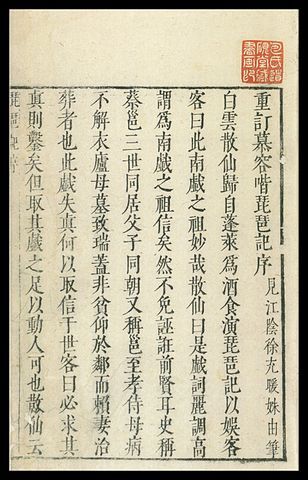 重訂慕容喈琵琶記序 見江陰徐充暖姝由筆
白雲散仙歸自蓬萊為酒食演琵琶記以娛客
客曰此南戲之祖妙哉散仙曰是戲詞麗調高
謂為南戲之祖信矣然不免誣誑前賢耳史稱
蔡邕三世同居父子同朝又稱邕至孝侍母病
不解衣廬母墓致瑞蓋非貧仰於鄰而賴妻治
葬者也此戲失真何以取信于世客曰必求其
真則鑿矣但取其戲之足以動人可也散仙云